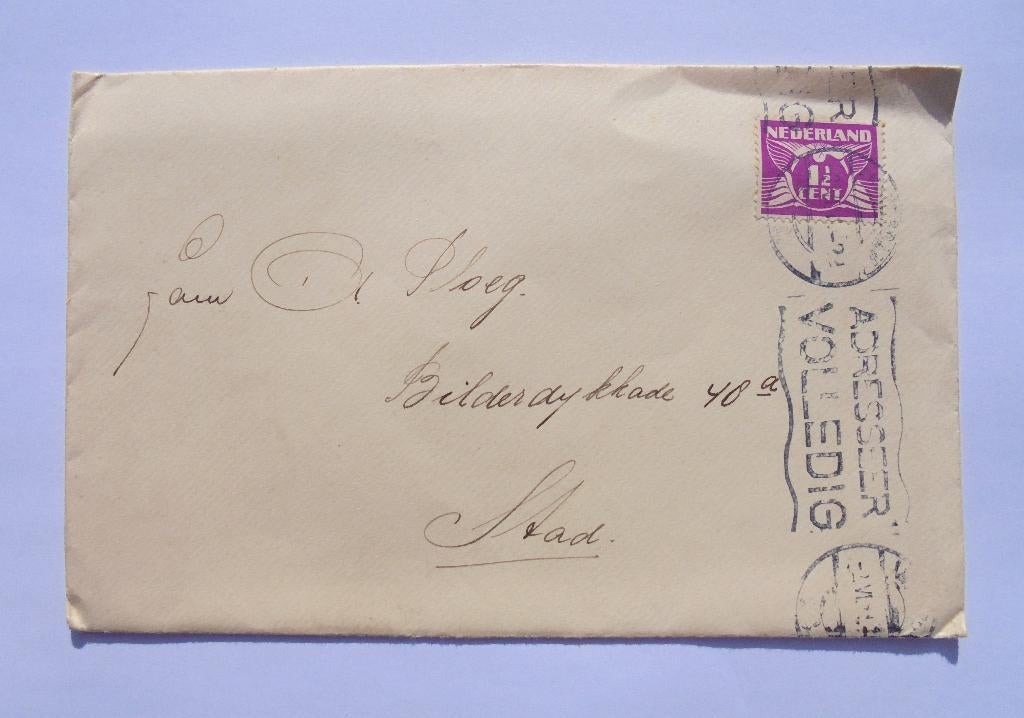 NEDERLAND
1½
CENT
ADRESSEER
VOLLEDIG
Fam D. Ploeg.
Bilderdykkade 48ª
Stad.